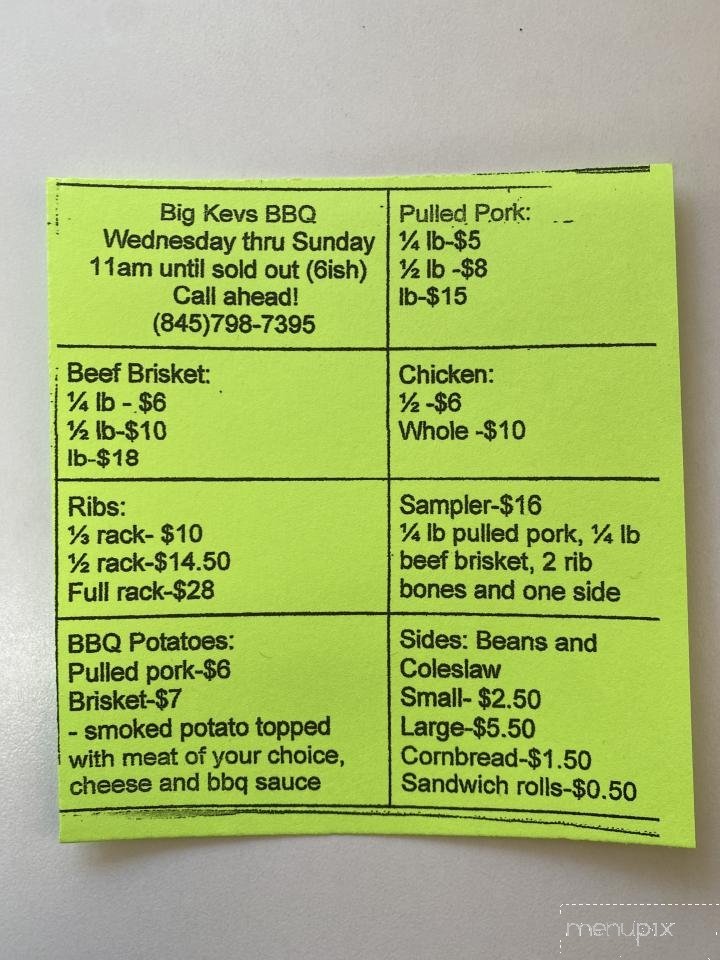 Big Kevs BBQ
Wednesday thru Sunday
11am until sold out (6ish)
Call ahead!
(845)798-7395
Pulled Pork:
¼ lb-$5
½ lb -$8
lb-$15
Beef Brisket:
¼ lb - $6
½ lb-$10
lb-$18
Chicken:
½ -$6
Whole -$10
Ribs:
⅓ rack- $10
½ rack-$14.50
Full rack-$28
Sampler-$16
¼ lb pulled pork, ¼ lb
beef brisket, 2 rib
bones and one side
BBQ Potatoes:
Pulled pork-$6
Brisket-$7
- smoked potato topped
with meat of your choice,
cheese and bbq sauce
Sides: Beans and
Coleslaw
Small- $2.50
Large-$5.50
Cornbread-$1.50
Sandwich rolls-$0.50
menupix